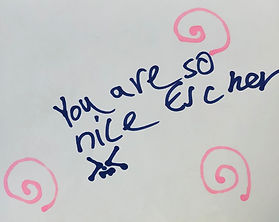 You are so
nice Escher